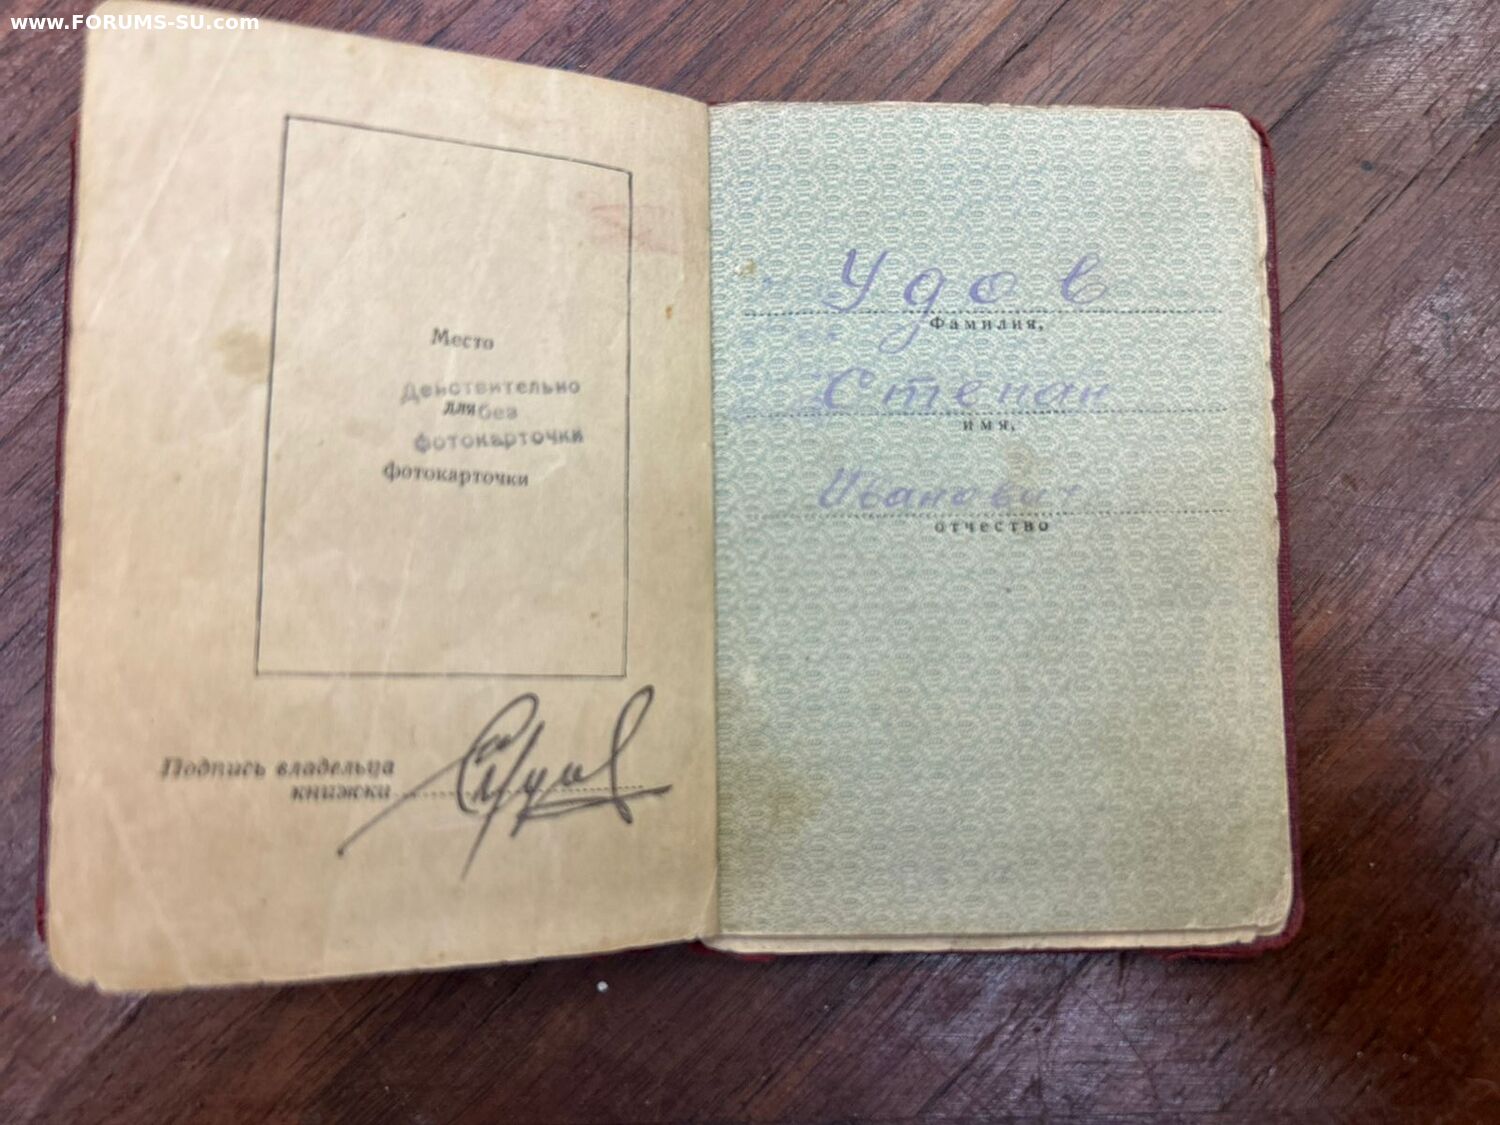 www.FORUMS-SU.com
Место
Действительно
для без
фотокарточки
фотокарточки
Подпись владельца
книжки
Удов
Фамилия,
Степан
имя,
Иванович
отчество